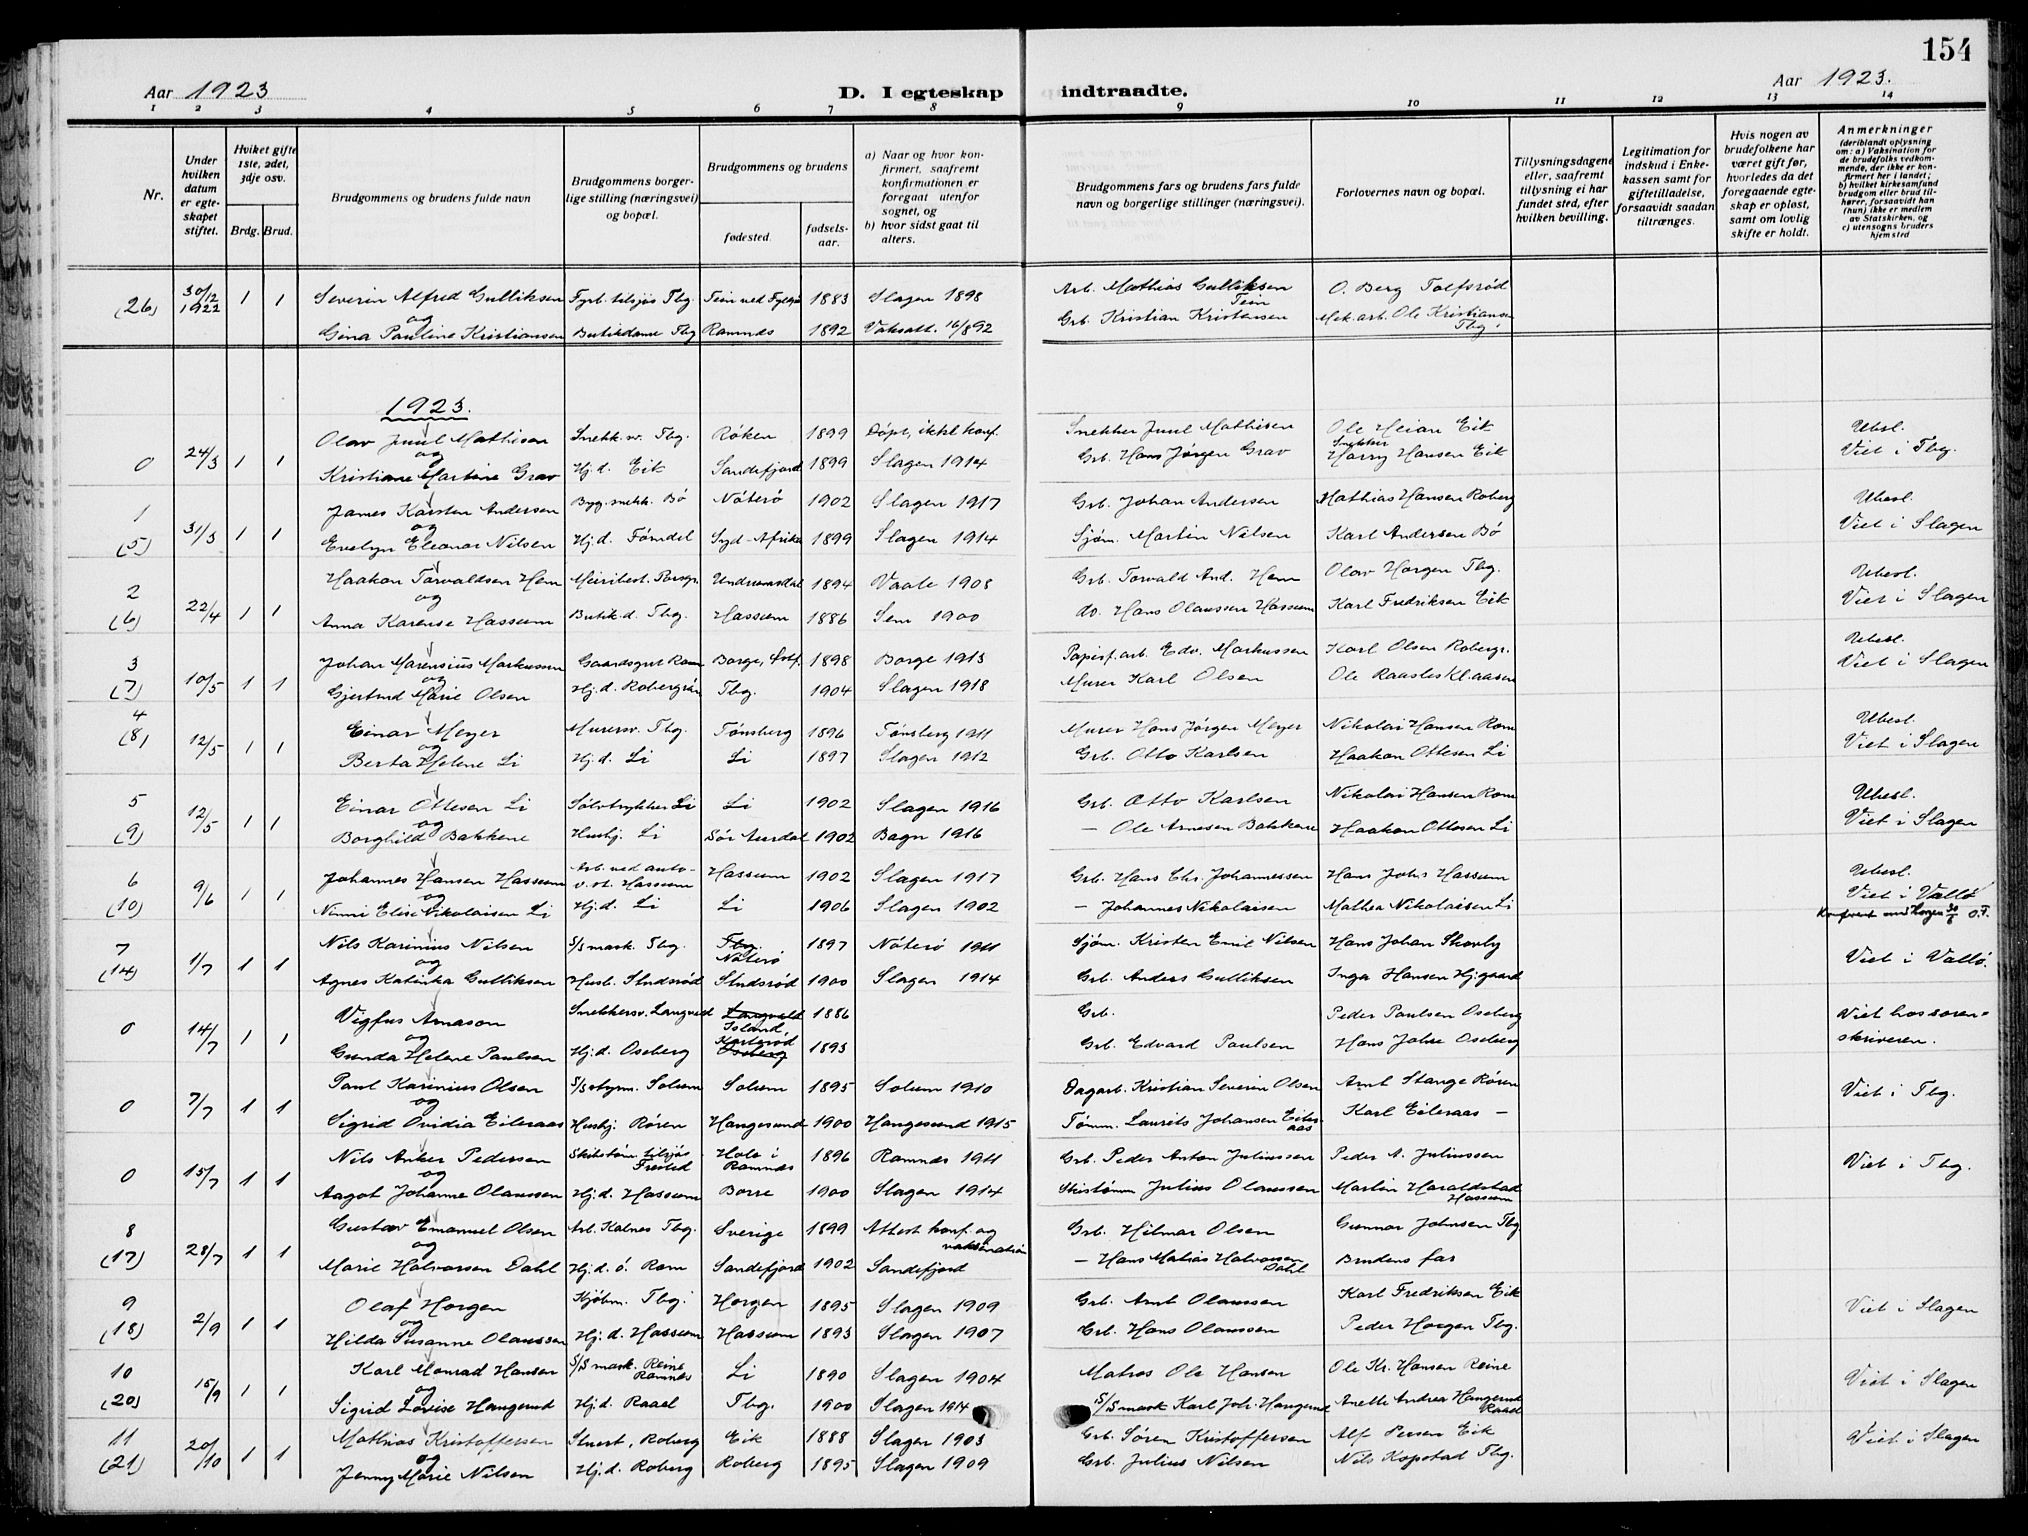 154
Aar 1923
D. I egteskap indtraadte.
Aar 1923.
1 2 3 4 5 6 7 8 9 10 11 12 13 14
Nr.
Under hvilken datum er egteskapet stiftet.
Hvilket gifte 1ste, 2det, 3dje osv.
Brdg. Brud.
Brudgommens og brudens fulde navn
Brudgommens borgerlige stilling (næringsvei) og bopæl.
Brudgommens og brudens
fødested.
fødselsaar.
a) Naar og hvor konfirmert, saafremt konfirmationen er foregaat utenfor sognet, og
b) hvor sidst gaat til alters.
Brudgommens fars og brudens fars fulde navn og borgerlige stillinger (næringsvei).
Forlovernes navn og bopæl.
Tillysningsdagene eller, saafremt tillysning ei har fundet sted, efter hvilken bevilling.
Legitimation for indskud i Enkekassen samt for giftetilladelse, forsaavidt saadan tiltrænges.
Hvis nogen av brudefolkene har været gift før, hvorledes da det foregaaende egteskap er opløst, samt om lovlig skifte er holdt.
Anmerkninger (deriblandt oplysning om: a) Vaksination for de brudefolks vedkommende, der ikke er konfirmert her i landet; b) hvilket kirkesamfund brudgom eller brud tilhører, forsaavidt han (hun) ikke er medlem av Statskirken, og c) utensogns bruders hjemsted
(26) 30/12 1922 1 1 Severin Alfred Gulliksen Fyrb. tilsjøs Tbg. 1883 Slagen 1898 Arb. Mathias Gulliksen Tein O. Berg Tolfsrød
og
Gina Pauline Kristiansen Butikdame Tbg Ramnes 1892 Vaksatt. 16/8 92 Grb. Kristian Kristensen Mek. arb. Ole Kristiansen Tbg.
1923.
0 24/3 1 1 Olav Juul Mathisen Snekk. sv. Tbg. Røken 1899 Døpt, ikke konf. Snekker Juul Mathisen Ole Meian Eik Ubesl.
og
Kristiane Martine Grav Hj.d. Eik Sandefjord 1899 Slagen 1914 Grb. Hans Jørgen Grav Snekker Harry Hansen Eik Viet i Tbg.
1 (5) 31/3 1 1 James Karsten Andersen Byg. snekk. Bø Nøterø 1902 Slagen 1917 Grb. Johan Andersen Mathias Hansen Roberg Ubesl.
og
Evelyn Eleanor Nilsen Hj.d. Fømdel Syd-Afrika 1899 Slagen 1914 Sjøm. Martin Nilsen Karl Andersen Bø Viet i Slagen
2 (6) 22/4 1 1 Haakon Torvaldsen Hem Meieribest. Porsgr. Undrumsdal 1894 Vaale 1908 Grb. Torvald And. Hem Olav Horgen Tbg. Ubesl.
og
Anna Karense Hassum Butik.d. Tbg. Hassum 1886 Sem 1900 do. Hans Olaussen Hassum Karl Fredriksen Eik Viet i Slagen
3 (7) 10/5 1 1 Johan Marensius Markussen Gaardsgut Rom Borge, Østf. 1898 Borge 1913 Papirf.arb. Edv. Markussen Karl Olsen Robergr. Ubesl.
og
Gjertrud Marie Olsen Hj.d. Robergrøn Tbg. 1904 Slagen 1918 Murer Karl Olsen Ole Raastes Klaasen Viet i Slagen
4 (8) 12/5 1 1 Einar Meyer Murersv. Tbg. Tønsberg 1896 Tønsberg 1911 Murer Hans Jørgen Meyer Nikolai Hansen Rom Ubesl.
og
Berta Helene Li Hj.d. Li Li 1897 Slagen 1912 Grb. Otto Karlsen Haakon Ottesen Li Viet i Slagen
5 (9) 12/5 1 1 Einar Ottesen Li Sølvtrykker Li Li 1902 Slagen 1916 Grb. Otto Karlsen Nikolai Hansen Rom Ubesl.
og
Borghild Bakkene Hushj. Li Sør Aurdal 1902 Bagn 1916 — Ole Arnesen Bakkene Haakon Ottesen Li Viet i Slagen
6 (10) 9/6 1 1 Johannes Hansen Hassum Arb. ved auto- v.st. Hassum Hassum 1902 Slagen 1917 Grb. Hans Chr. Johannessen Hans Johs Hassum Ubesl.
og
Nanni Elise Nikolaisen Li Hj.d. Li Li 1906 Slagen 1902 — Johannes Nikolaisen Mathea Nikolaisen Li Viet i Vallø
7 (14) 1/7 1 1 Nils Karinius Nilsen S/S mask. Tbg. Tbg. Nøterø 1897 Nøterø 1911 Sjøm. Kristen Emil Nilsen Hans Johan Skovly
og
Agnes Katinka Gulliksen Husb. Studsrød Studsrød 1900 Slagen 1914 Grb. Anders Gulliksen Inga Hansen Hj.gaard Viet i Vallø.
0 14/7 1 1 Vigfus Arnason Snekkersv. Langved Langveld Island, 1886 Grb. Peder Paulsen Oseberg Viet hos soren-
og
Gunda Helene Paulsen Hj.d. Oseberg Oseberg 1893 Grb. Edvard Paulsen Hans Johs Oseberg skriveren.
0 7/7 1 1 Paul Karinius Olsen S/S styrm. Solum Solum 1895 Solum 1910 Dagarb. Kristian Severin Olsen Arnt Stange Røren Viet i Tbg.
og
Sigrid Ovidia Eileraas Hushj. Røren Haugesund 1900 Haugesund 1915 Tømm. Laurits Johansen Eileraas Karl Eileraas —
0 15/7 1 1 Nils Anker Pedersen Skibstøm. tilsjøs Hole i Ramnes 1896 Ramnes 1911 Grb. Peder Anton Juliussen Peder A. Juliussen Viet i Tbg.
og
Aagot Johanne Olaussen Hj.d. Hassum Borre 1900 Slagen 1914 Skistømm Julius Olaussen Martin Haraldstad Hassum
8 (17) 28/7 1 1 Gustav Emanuel Olsen Arb. Kalnes Tbg. Sverige 1899 Attest konf. og vaksination Grb. Hilmar Olsen Gunnar Johnsen Tbg
og
Marie Halvorsen Dahl Hj.d. ö. Rom Sandefjord 1902 Sandefjord — Hans Matias Halvorsen Dahl Brudens far
9 (18) 2/9 1 1 Olaf Horgen Kjøbm. Tbg. Horgen 1895 Slagen 1909 Grb. Arnt Olaussen Karl Fredriksen Eik Viet i Slagen
og
Hilda Susanne Olaussen Hj.d. Hassum Hassum 1893 Slagen 1907 Grb. Hans Olaussen Peder Horgen Tbg.
10 (20) 15/9 1 1 Karl Monrad Hansen S/S mask. Reine Ramnes Li 1890 Slagen 1904 Matros Ole Hansen Ole Kr. Hansen Reine Viet i Slagen
og
Sigrid Lovise Haugerud Hj.d. Raael Tbg. 1900 Slagen 1914 S/S mask Karl Joh. Haugerud Anette Andrea Haugerud Raael
11 (21) 20/10 1 1 Mathias Kristoffersen Stuert, Roberg Eik 1888 Slagen 1903 Grb. Søren Kristoffersen Alf Persen Eik Viet i Slagen
og
Jenny Marie Nilsen Hj.d. Roberg Roberg 1895 Slagen 1909 Grb. Julius Nilsen Nils Kopstad Tbg.